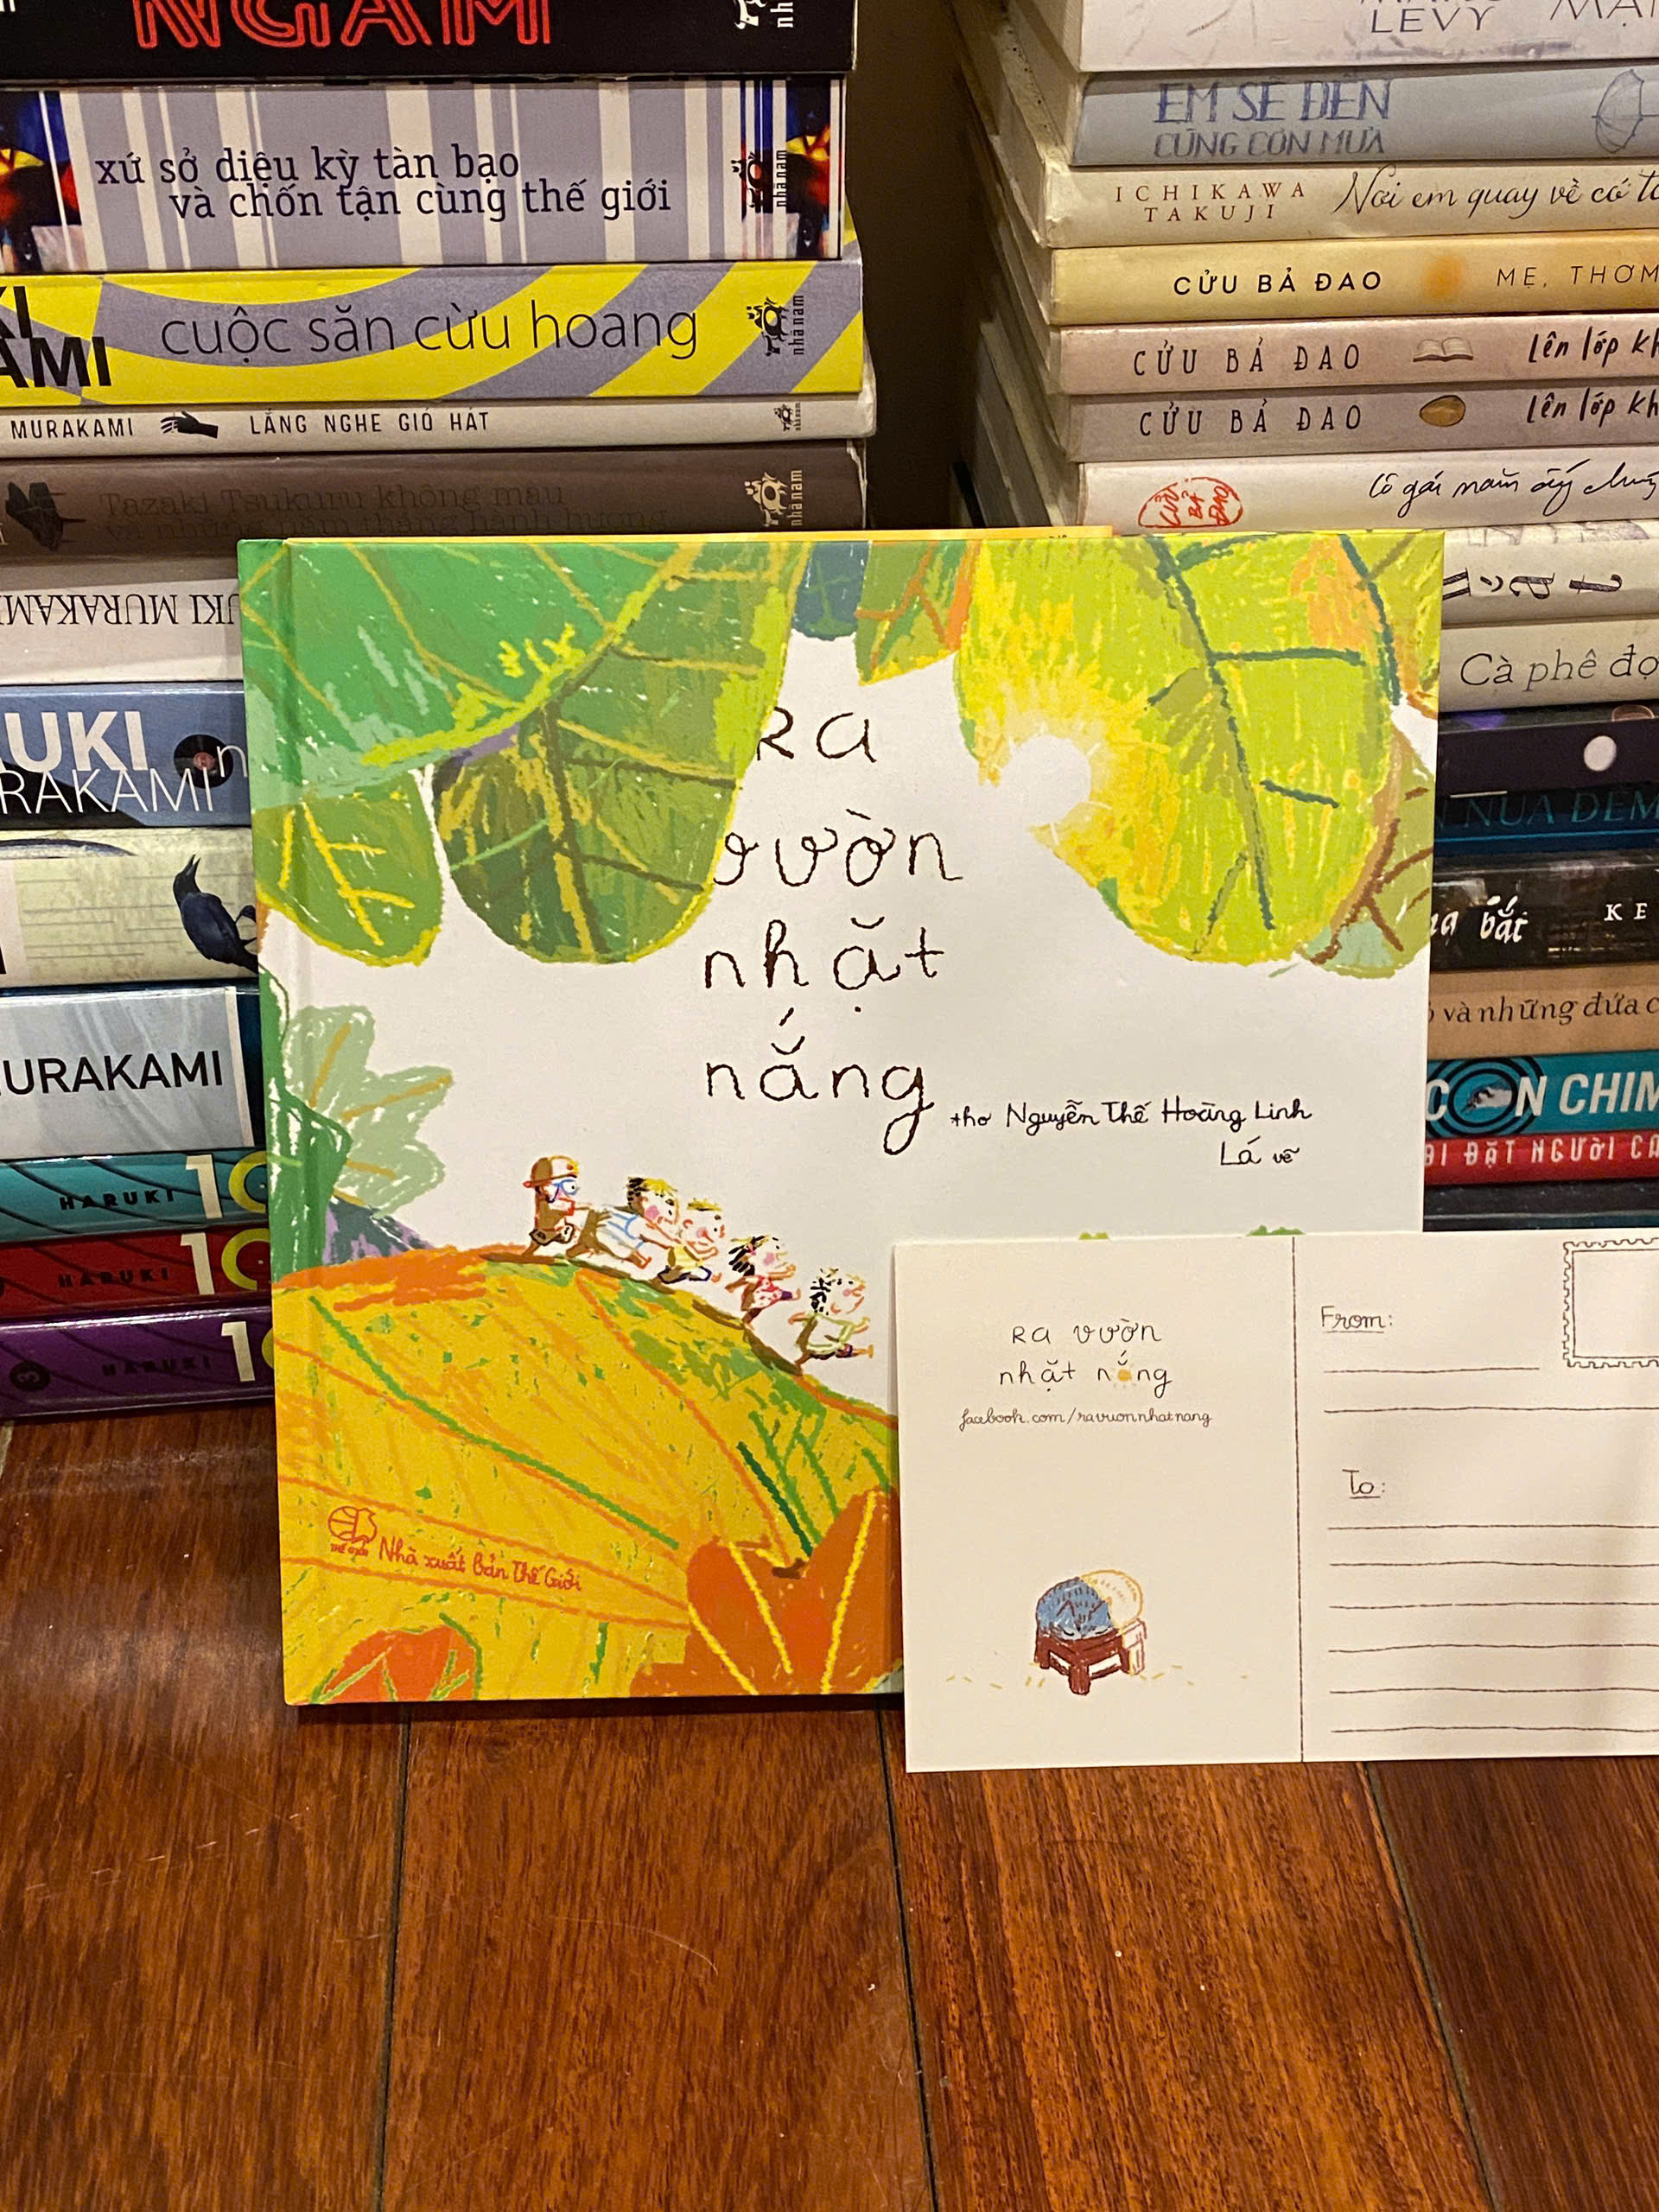 NGẦM
xứ sở diệu kỳ tàn bạo
và chốn tận cùng thế giới
nhã nam
cuộc săn cừu hoang
nhã nam
MURAKAMI
LẮNG NGHE GIÓ HÁT
nhã nam
Tazaki Tsukuru không màu
và những năm tháng hành hương
nhã nam
MURAKAMI
MURAKAMI
HARUKI
HARUKI
3 HARUKI
LEVY
EM SẼ ĐẾN
CÙNG CƠN MƯA
ICHIKAWA
TAKUJI
Nơi em quay về có
CỬU BẢ ĐAO
MẸ, THƠM
CỬU BẢ ĐAO
Lên lớp
CỬU BẢ ĐAO
Lên lớp
CỬU
BẢ
ĐAO
Cô gái năm ấy
Cà phê
NỬA ĐÊM
bắt
và những đứa
CON CHIM
ĐẶT NGƯỜI
Ra
vườn
nhặt
nắng
thơ Nguyễn Thế Hoàng Linh
Lá vẽ
THẾ GIỚI
Nhà xuất bản Thế Giới
Ra vườn
nhặt nắng
facebook.com/ravuonnhatnang
From:
To: